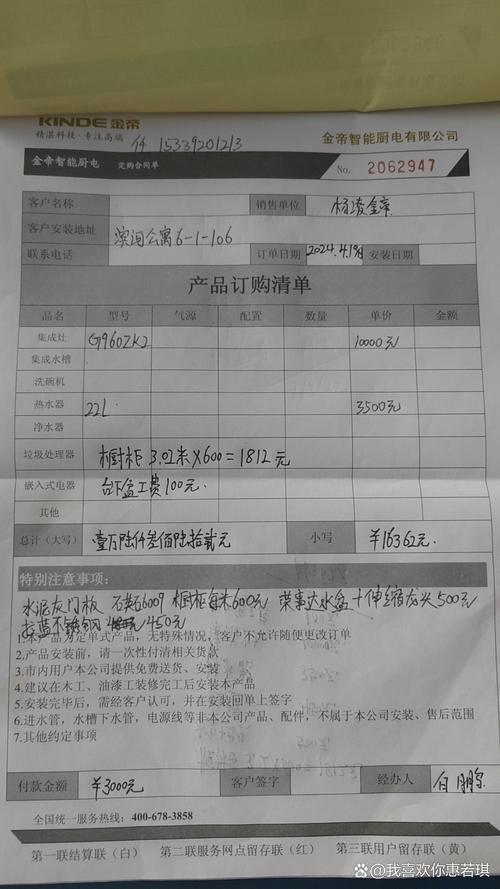 KINDE 金帝
精湛科技·专注高端
15339201213
金帝智能厨电有限公司
金帝智能厨电 定购合同单
No. 2062947
客户名称 销售单位 杨凌金帝
客户安装地址 滨润公寓6-1-106
联系电话 订单日期 2024.4.19日 安装日期
产品订购清单
品名 型号 气源 配置 数量 单价 金额
集成灶 G960ZK2 10000元
集成水槽
洗碗机
热水器 22L 3500元
净水器
垃圾处理器 橱柜 3.02米×600=1812元
嵌入式电器 台下盆工费100元.
其他
总计(大写) 壹万陆仟叁佰陆拾贰元 小写 ¥16362元.
特别注意事项:
水泥灰门板 石英石6009 橱柜每米600元 荣事达水盆+伸缩龙头500元
拉蓝不锈钢 450元
1.本产品为定单式产品,无特殊情况,客户不允许随便更改订单
2.产品安装前,请一次性付清相关货款
3.市内用户本公司提供免费送货、安装
4.建议在木工、油漆工装修完工后安装本产品
5.安装完毕后,需经客户认可,并在安装回单上签字
6.进水管,水槽下水管,电源线等非本公司产品、配件,不属于本公司安装、售后范围
7.其他约定事项
付款金额 ¥3000元 客户签字 经办人 白鹏
全国统一服务热线:400-678-3858
第一联结算联(白) 第二联服务网点留存联(红) 第三联用户留存联(黄)
@我喜欢你惠若琪